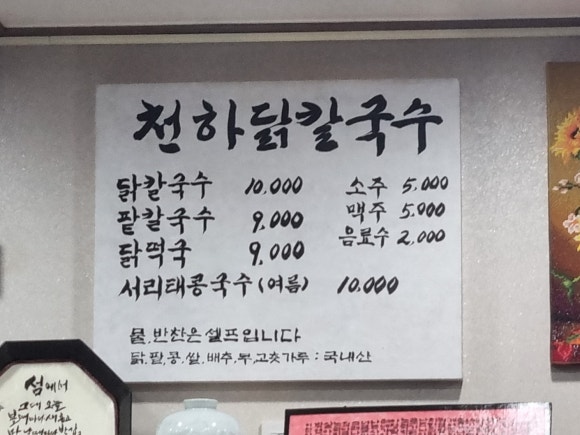 천하닭칼국수
닭칼국수 10,000
팥칼국수 9,000
닭떡국 9,000
서리태콩국수(여름) 10.000
소주 5,000
맥주 5,000
음료수 2,000
물,반찬은 셀프입니다
닭,팥,콩,쌀,배추,무,고춧가루:국내산
섬에서
그대 오늘